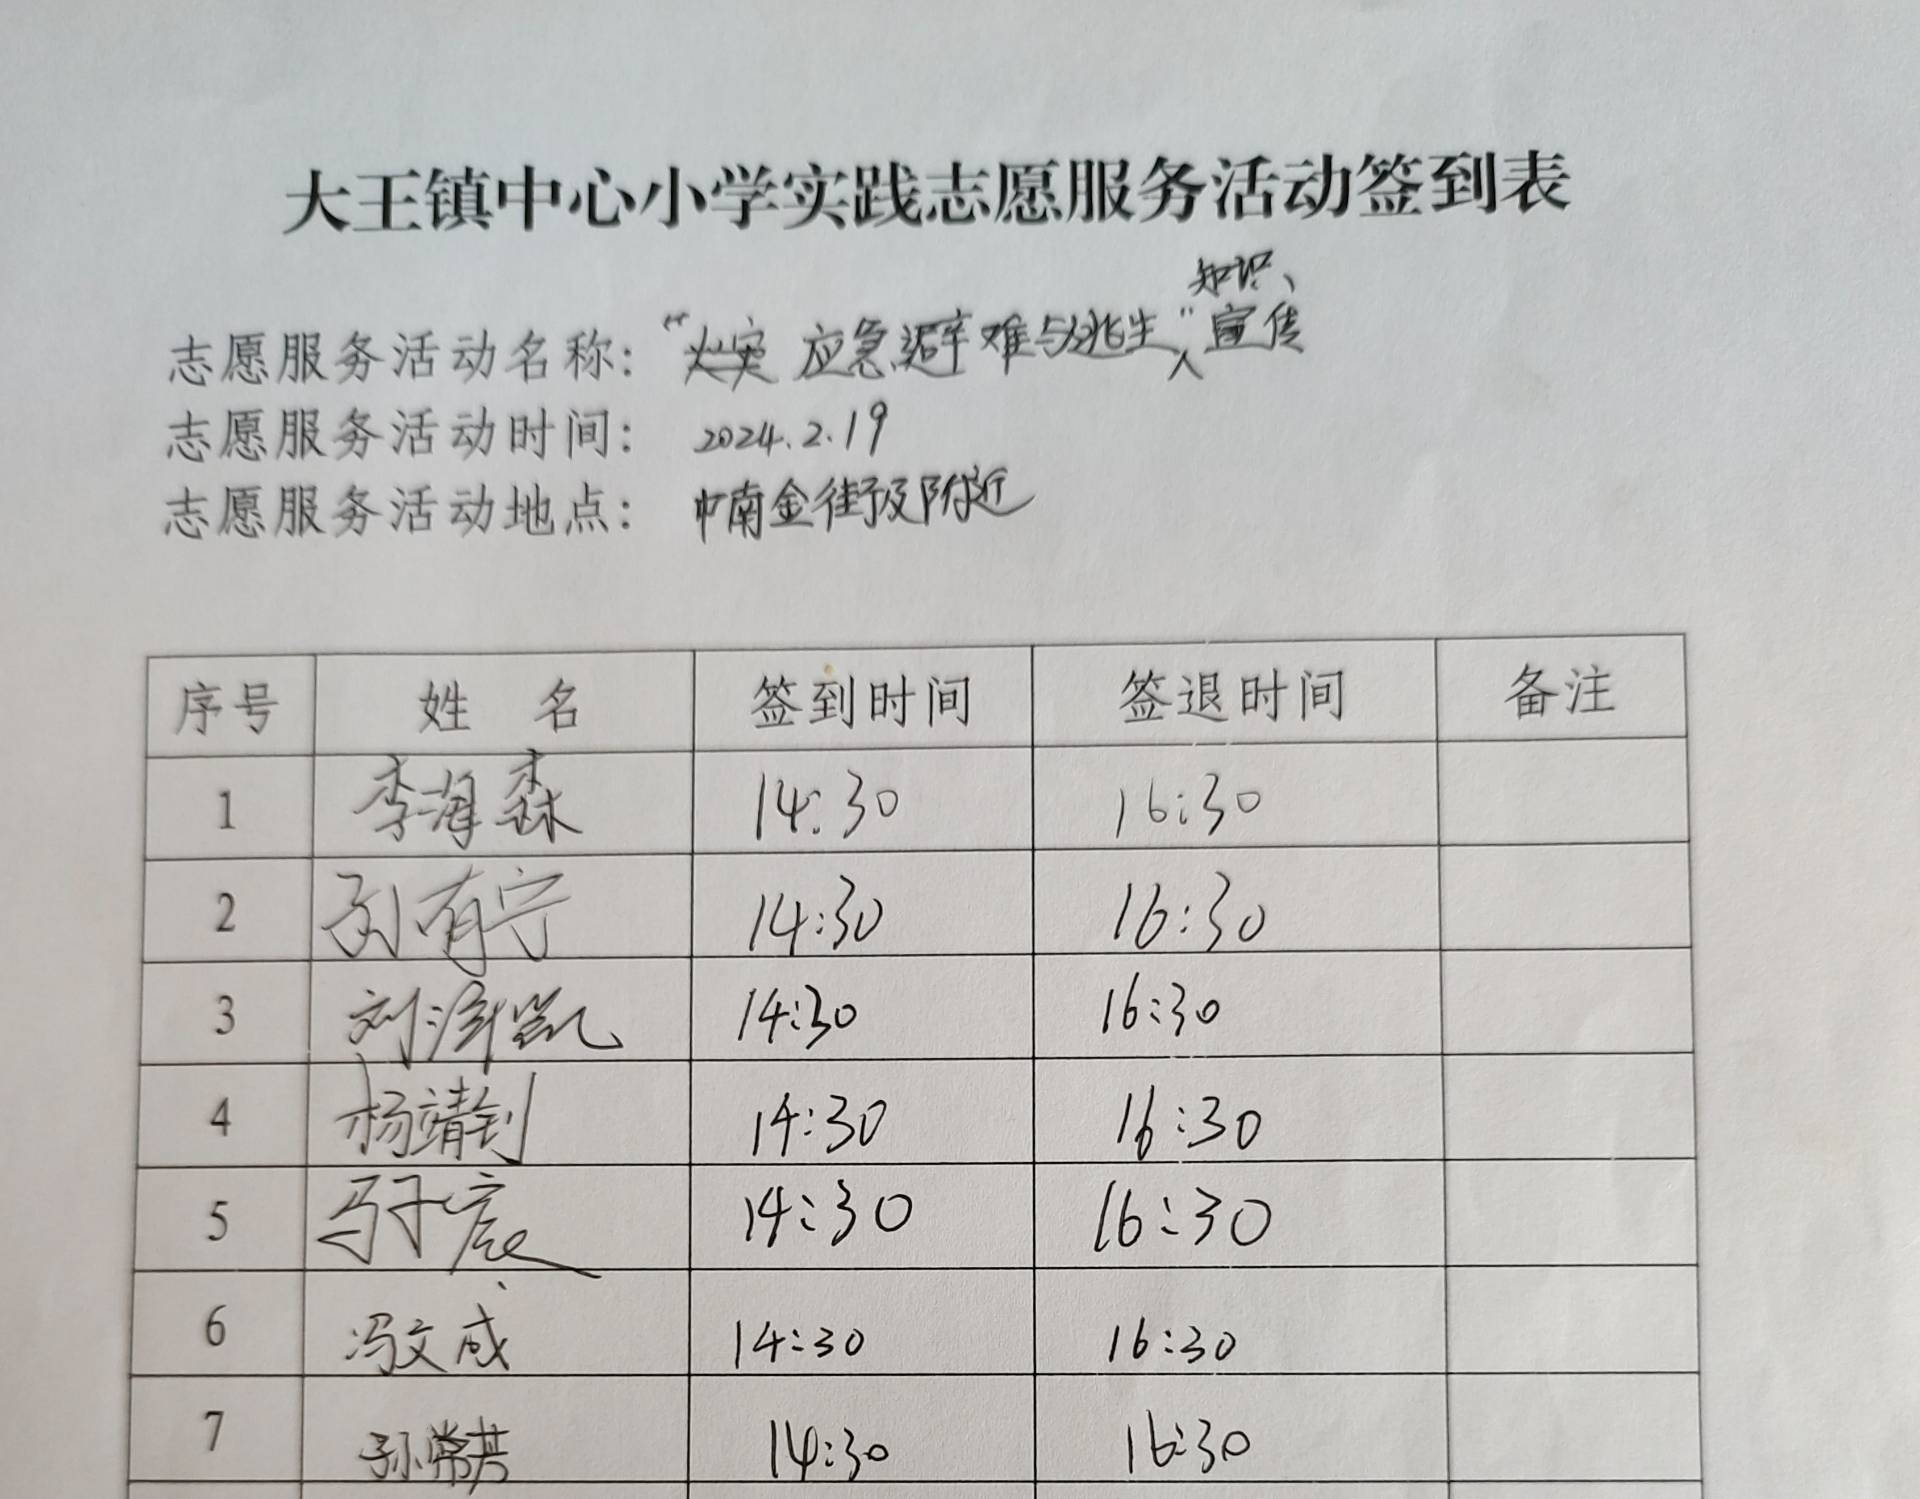 大王镇中心小学实践志愿服务活动签到表
志愿服务活动名称：“应急避难与逃生”知识、宣传
志愿服务活动时间：2024.2.19
志愿服务活动地点：中南金街及附近
序号 姓 名 签到时间 签退时间 备注
1 李海森 14:30 16:30
2 有宁 14:30 16:30
3 刘泽凯 14:30 16:30
4 杨靖钊 14:30 16:30
5 马子宸 14:30 16:30
6 冯文成 14:30 16:30
7 孙常芳 14:30 16:30